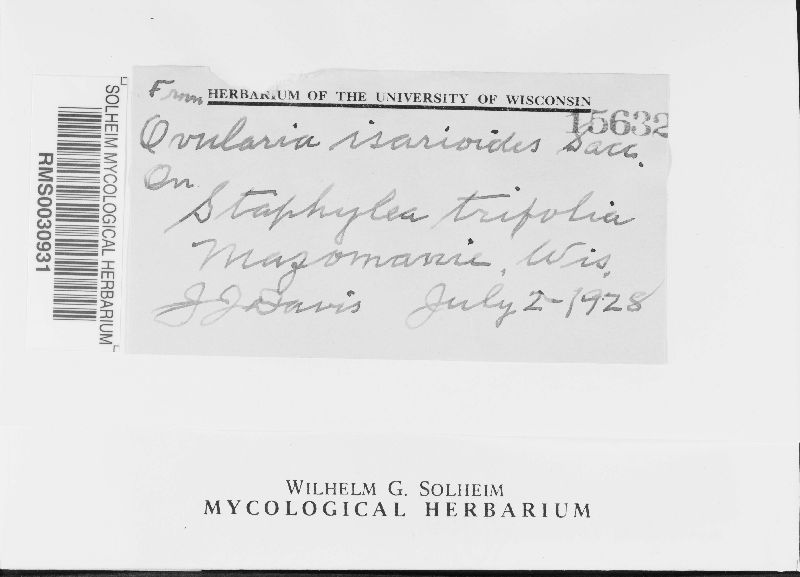 From HERBARIUM OF THE UNIVERSITY OF WISCONSIN
15632
Ovularia isarioides Sacc.
On
Staphylea trifolia
Mazomanie, Wis.
J J Davis July 2-1928
SOLHEIM MYCOLOGICAL HERBARIUM
RMS0030931
WILHELM G. SOLHEIM
MYCOLOGICAL HERBARIUM